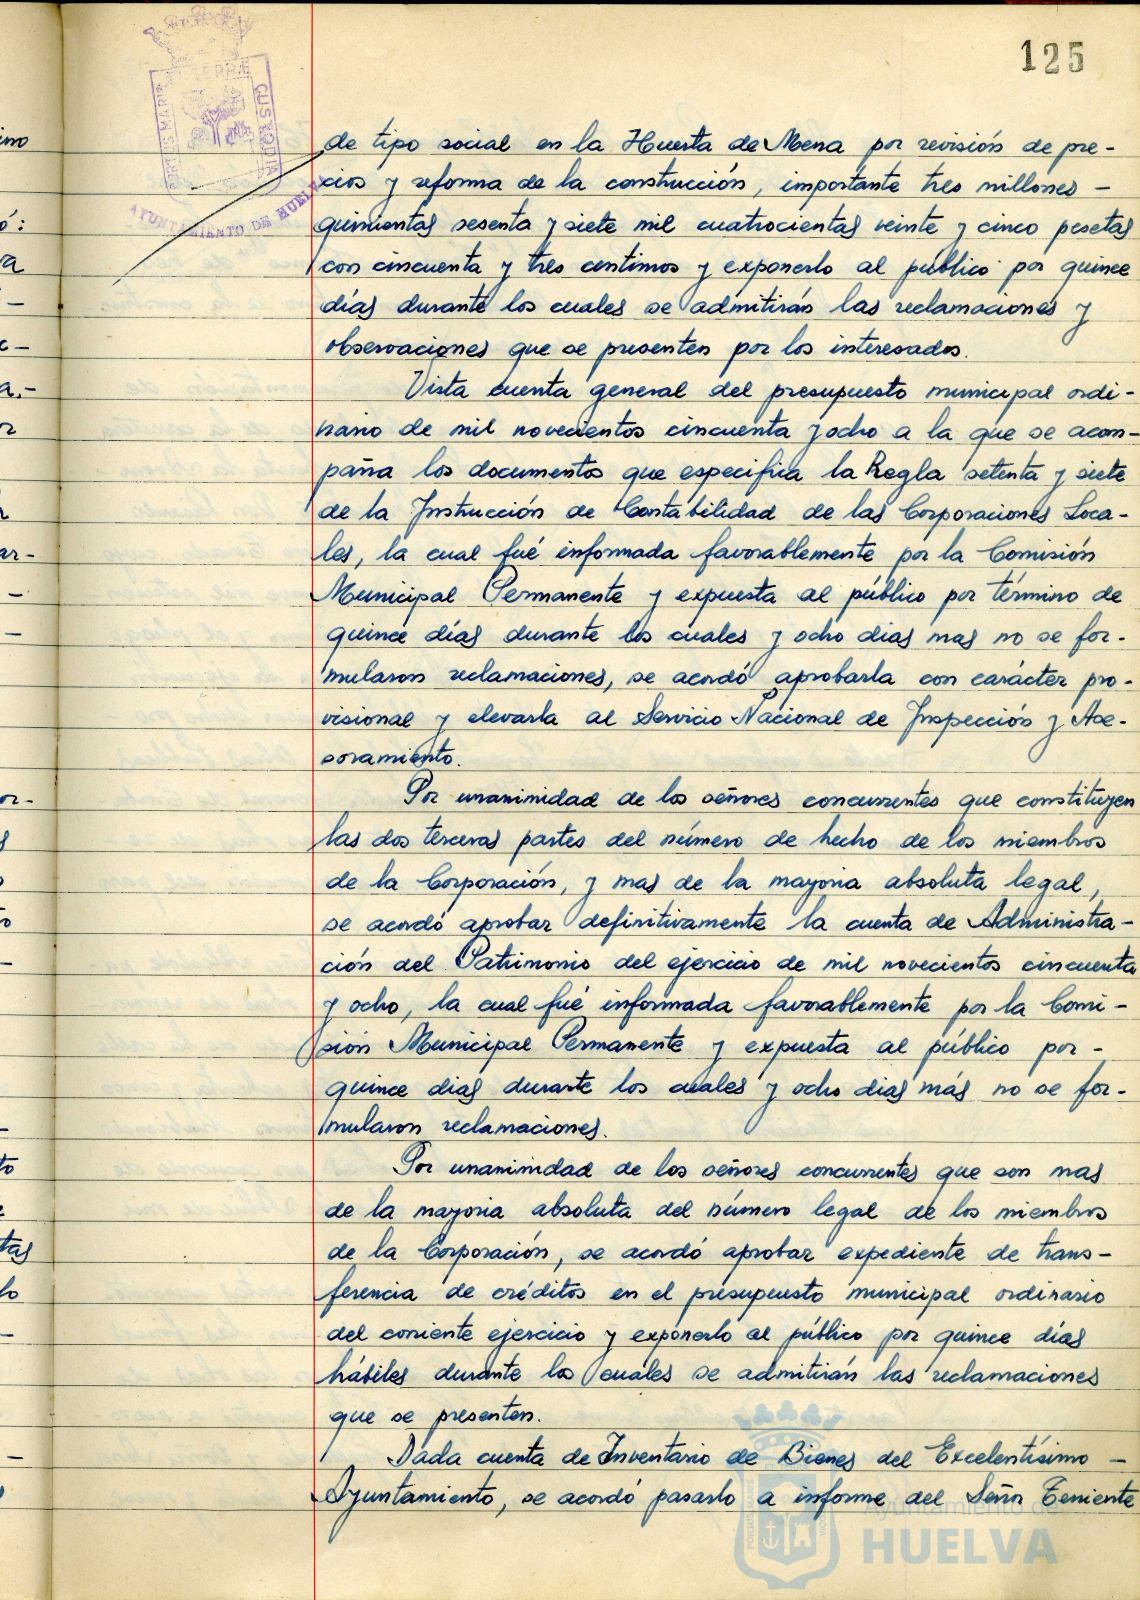 125
de tipo social en la Huerta de Mena por revisión de pre-
cios y reforma de la construcción, importante tres millones -
quinientas sesenta y siete mil cuatrocientas veinte y cinco pesetas
con cincuenta y tres centimos y exponerlo al público por quince
días durante los cuales se admitirán las reclamaciones y
observaciones que se presenten por los interesados.
Vista cuenta general del presupuesto municipal ordi-
nario de mil novecientos cincuenta y ocho a la que se acom-
paña los documentos que especifica la Regla setenta y siete
de la Instrucción de Contabilidad de las Corporaciones Loca-
les, la cual fué informada favorablemente por la Comisión
Municipal Permanente y expuesta al público por término de
quince días durante los cuales y ocho dias mas no se for-
mularon reclamaciones, se acordó aprobarla con carácter pro-
visional y elevarla al Servicio Nacional de Inspección y Ase-
soramiento.
Por unanimidad de los señores concurrentes que constituyen
las dos terceras partes del número de hecho de los miembros
de la Corporación, y mas de la mayoria absoluta legal,
se acordó aprobar definitivamente la cuenta de Administra-
ción del Patrimonio del ejercicio de mil novecientos cincuenta
y ocho, la cual fué informada favorablemente por la Comi-
sión Municipal Permanente y expuesta al público por -
quince dias durante los cuales y ocho dias más no se for-
mularon reclamaciones.
Por unanimidad de los señores concurrentes que son mas
de la mayoria absoluta del número legal de los miembros
de la Corporación, se acordó aprobar expediente de trans-
ferencia de créditos en el presupuesto municipal ordinario
del corriente ejercicio y exponerlo al público por quince días
hábiles durante los cuales se admitirán las reclamaciones
que se presenten.
Dada cuenta de Inventario de Bienes del Excelentísimo -
Ayuntamiento, se acordó pasarlo a informe del Señor Teniente
AYUNTAMIENTO DE HUELVA
PORTUS MARIS
TERRÆ
CUSTODIA
Ayuntamiento de
HUELVA